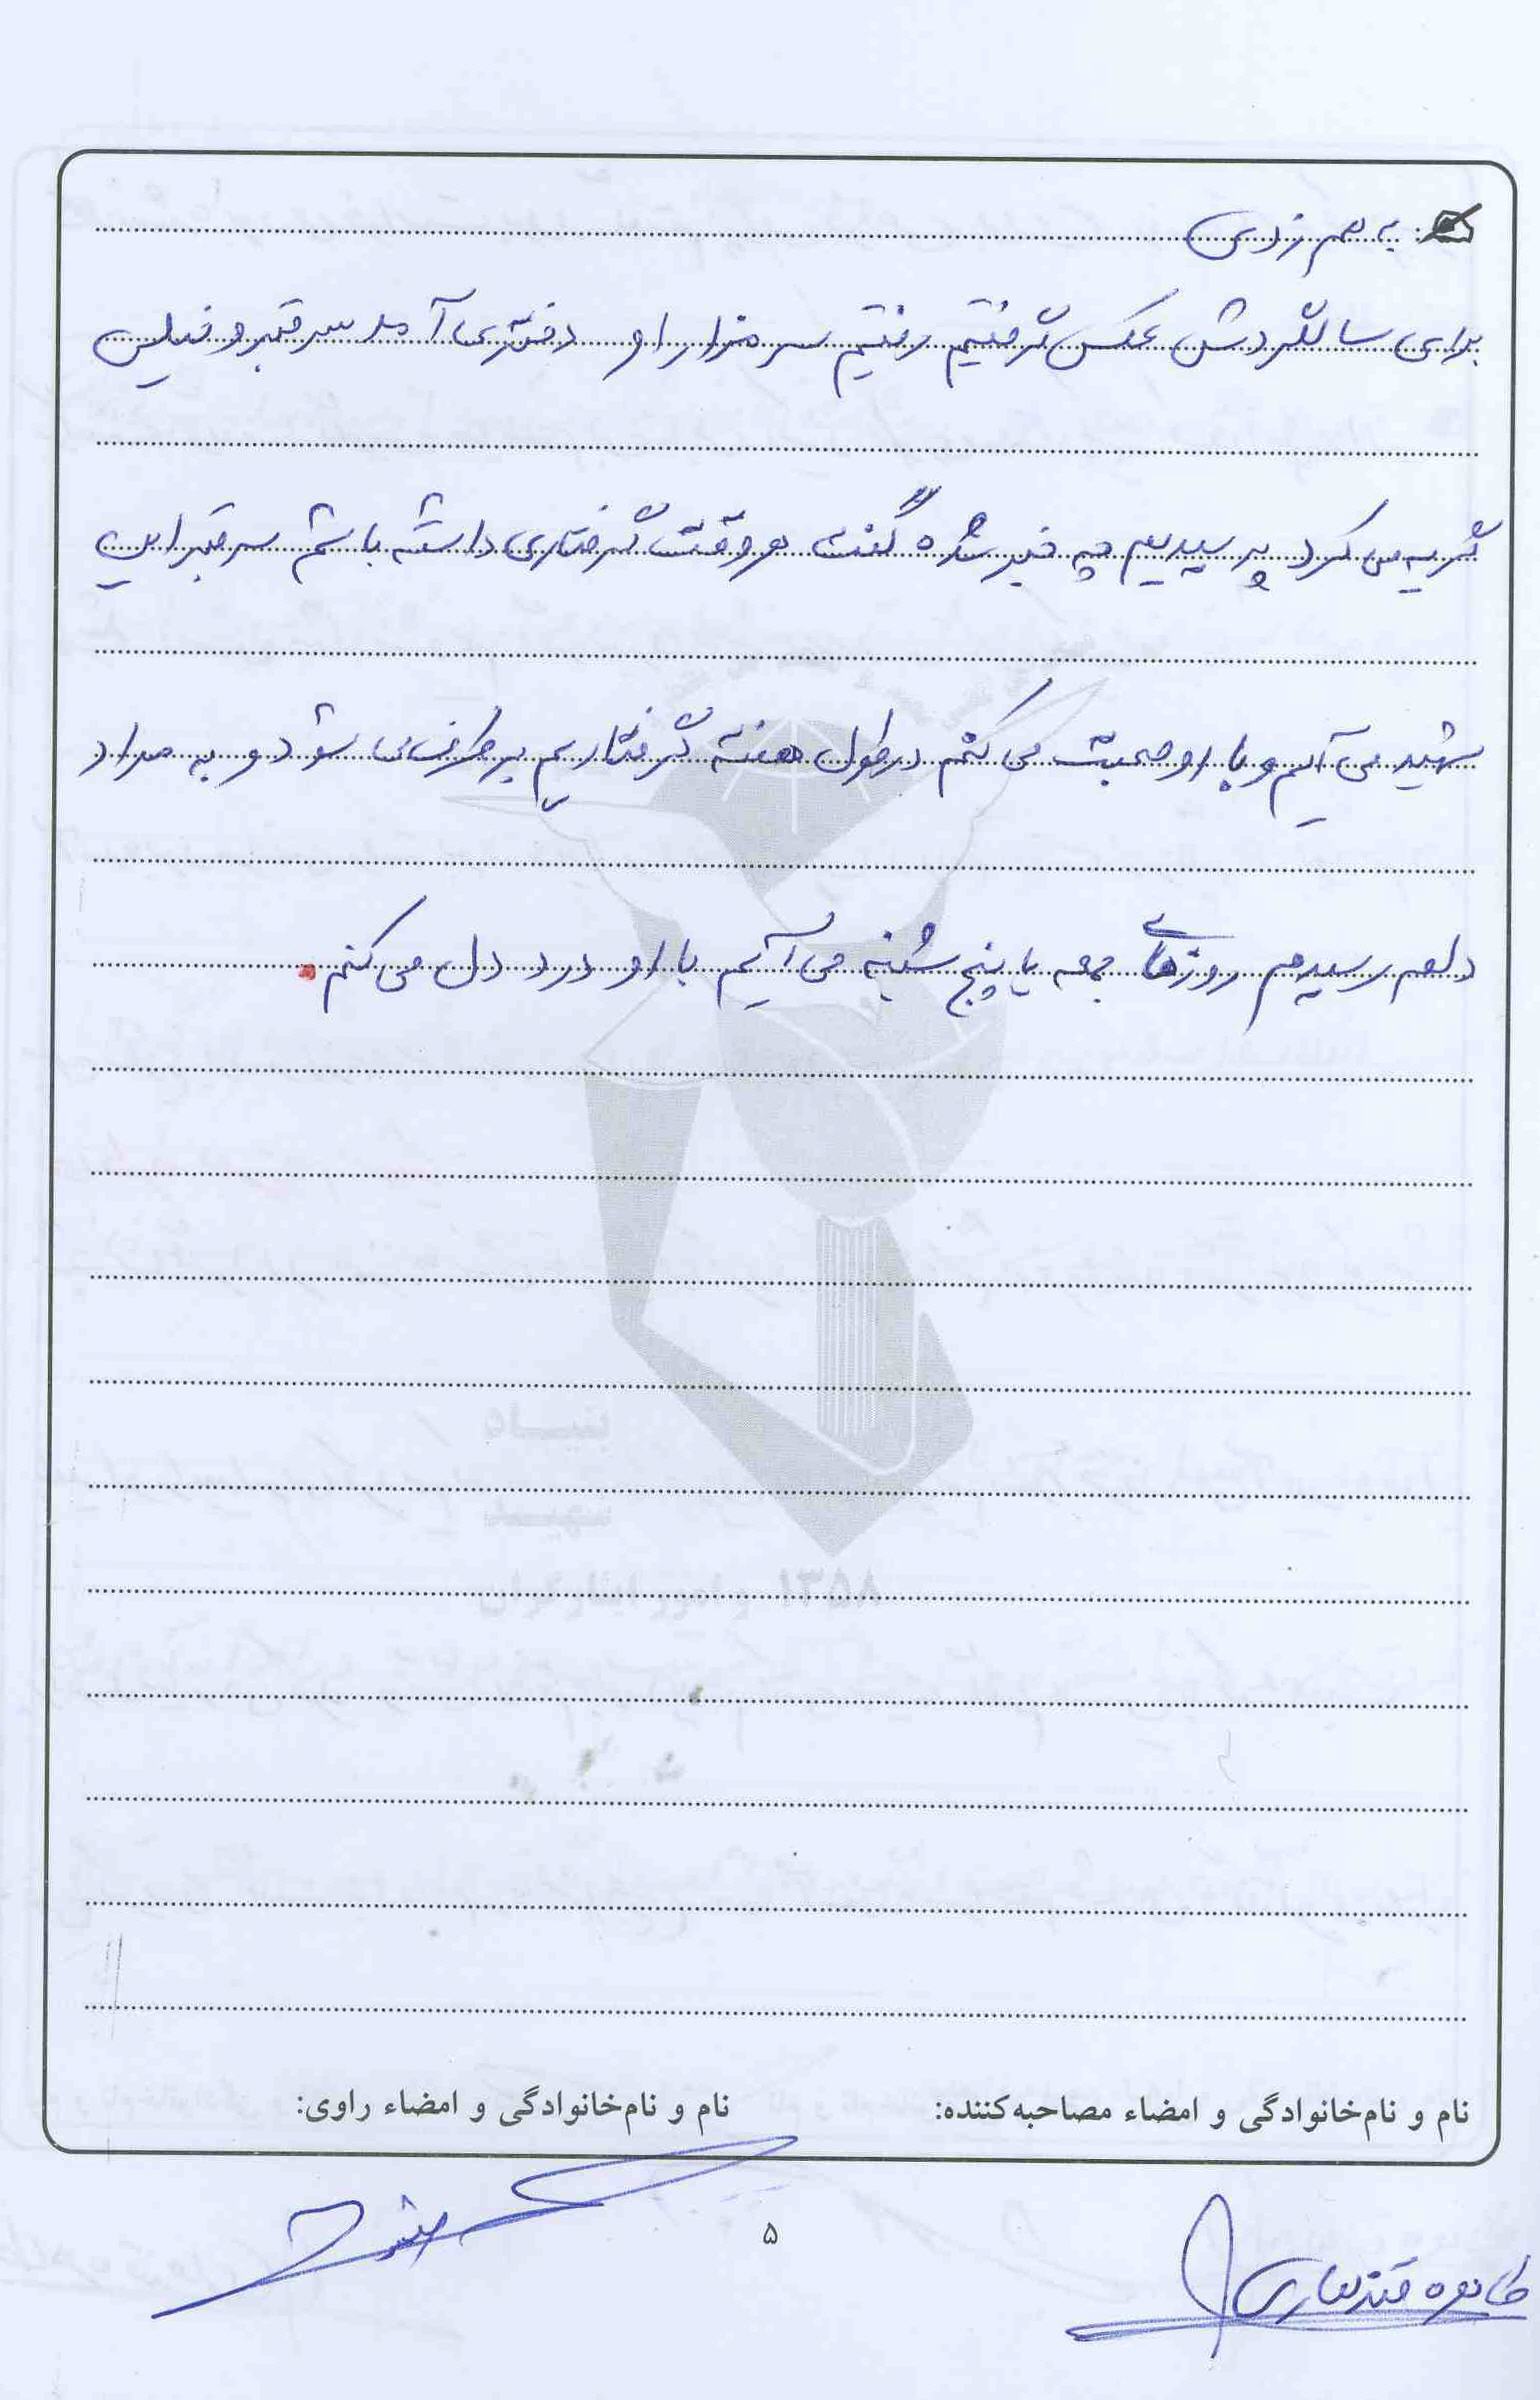 به هم زدی
برای سالگردش عکس گرفتیم رفتیم سر مزار او دختری آمد سر قبر و خیلی
گریه می کرد پرسیدیم چه خبر شده گفت هر وقت گرفتاری داشته باشم سر قبر این
شهید می آیم و با او صحبت می کنم در طول هفته گرفتاریم برطرف می شود و به مراد
دلم رسیدم روزهای جمعه یا پنج شنبه می آیم با او درد دل می کنم.
بنیاد
شهید
و امور ایثارگران ۱۳۵۸
نام و نام‌خانوادگی و امضاء مصاحبه‌کننده: نام و نام‌خانوادگی و امضاء راوی:
۵
طاهره قندهاری